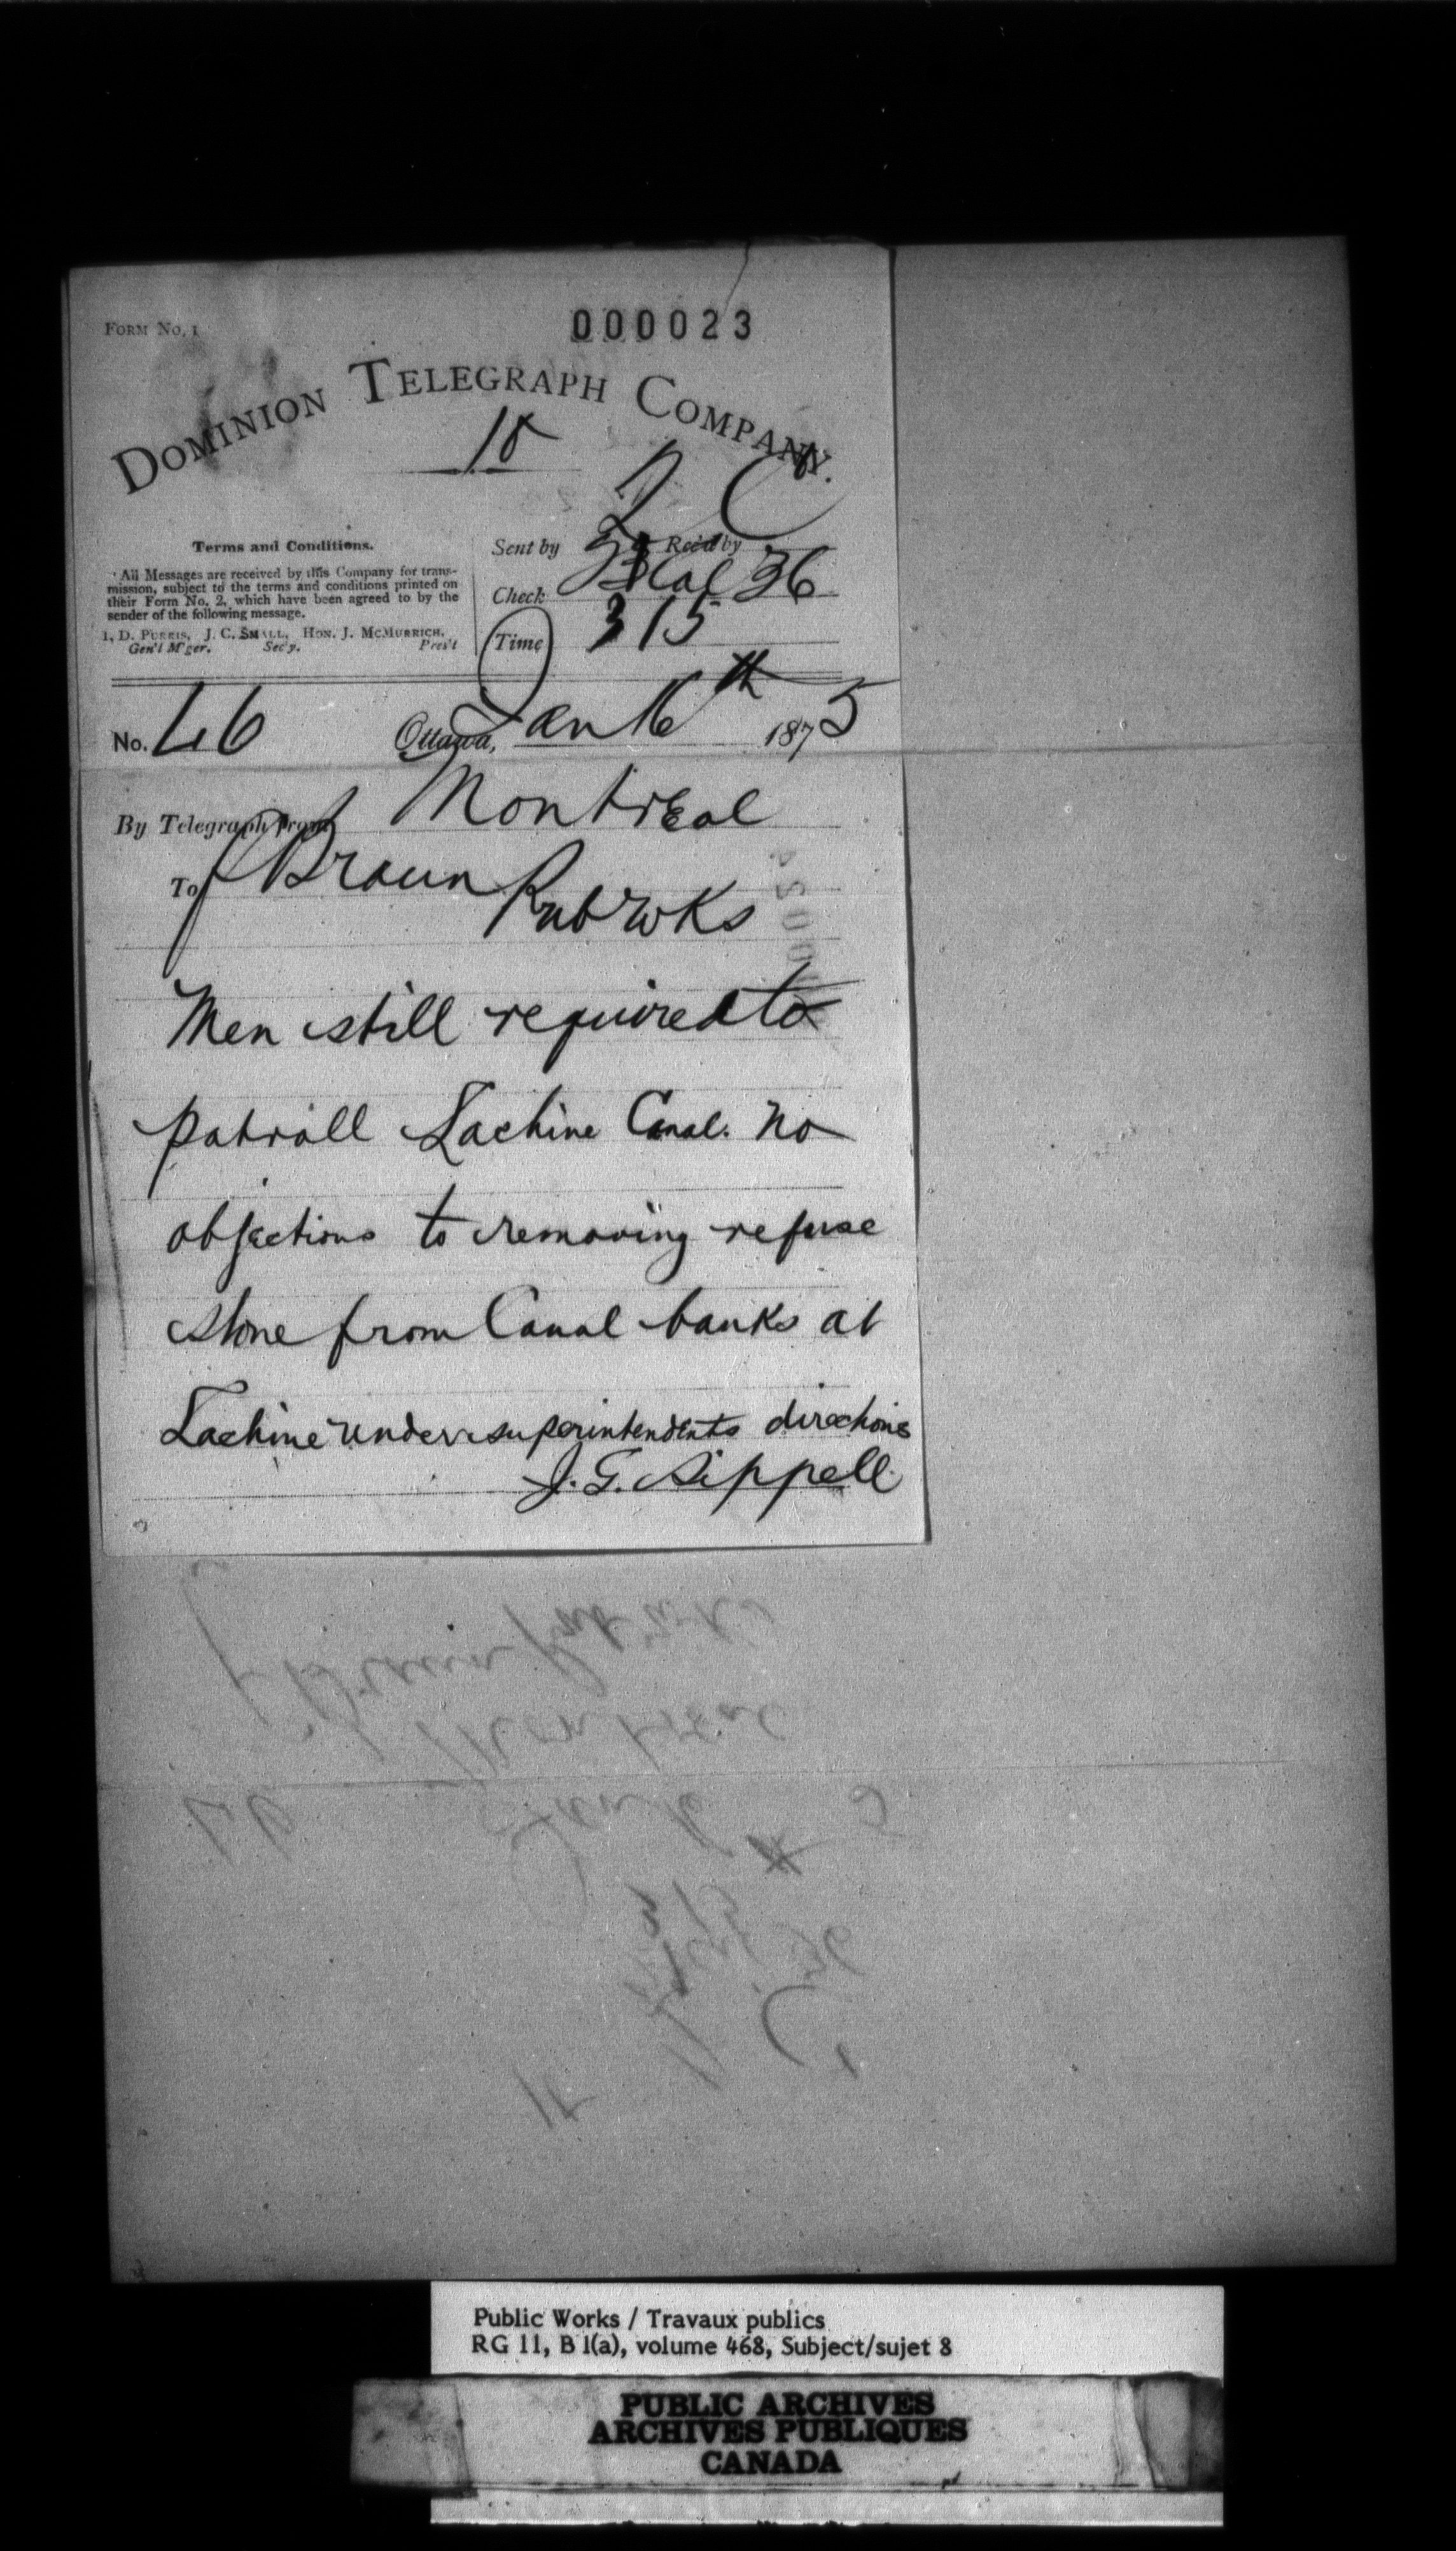 FORM NO. 1
000023
DOMINION TELEGRAPH COMPANY.
18
Terms and Conditions.
All Messages are received by this Company for trans-
mission, subject to the terms and conditions printed on
their Form No. 2, which have been agreed to by the
sender of the following message.
J. C. SMALL, HON. J. MCMURRICH,
Gen'l M'ger. Sec'y. Pres't
Sent by Rec'd by
Check 33 Col 36
Time 315
No. 46 Ottawa, Jan 16th 1875
By Telegraph from Montreal
To F Braun
Pub Wks
Men still required to
patroll Lachine Canal. No
objections to removing refuse
stone from Canal banks at
Lachine under superintendents directions
J. G. Sippell
Public Works / Travaux publics
RG 11, B 1(a), volume 468, Subject/sujet 8
PUBLIC ARCHIVES
ARCHIVES PUBLIQUES
CANADA